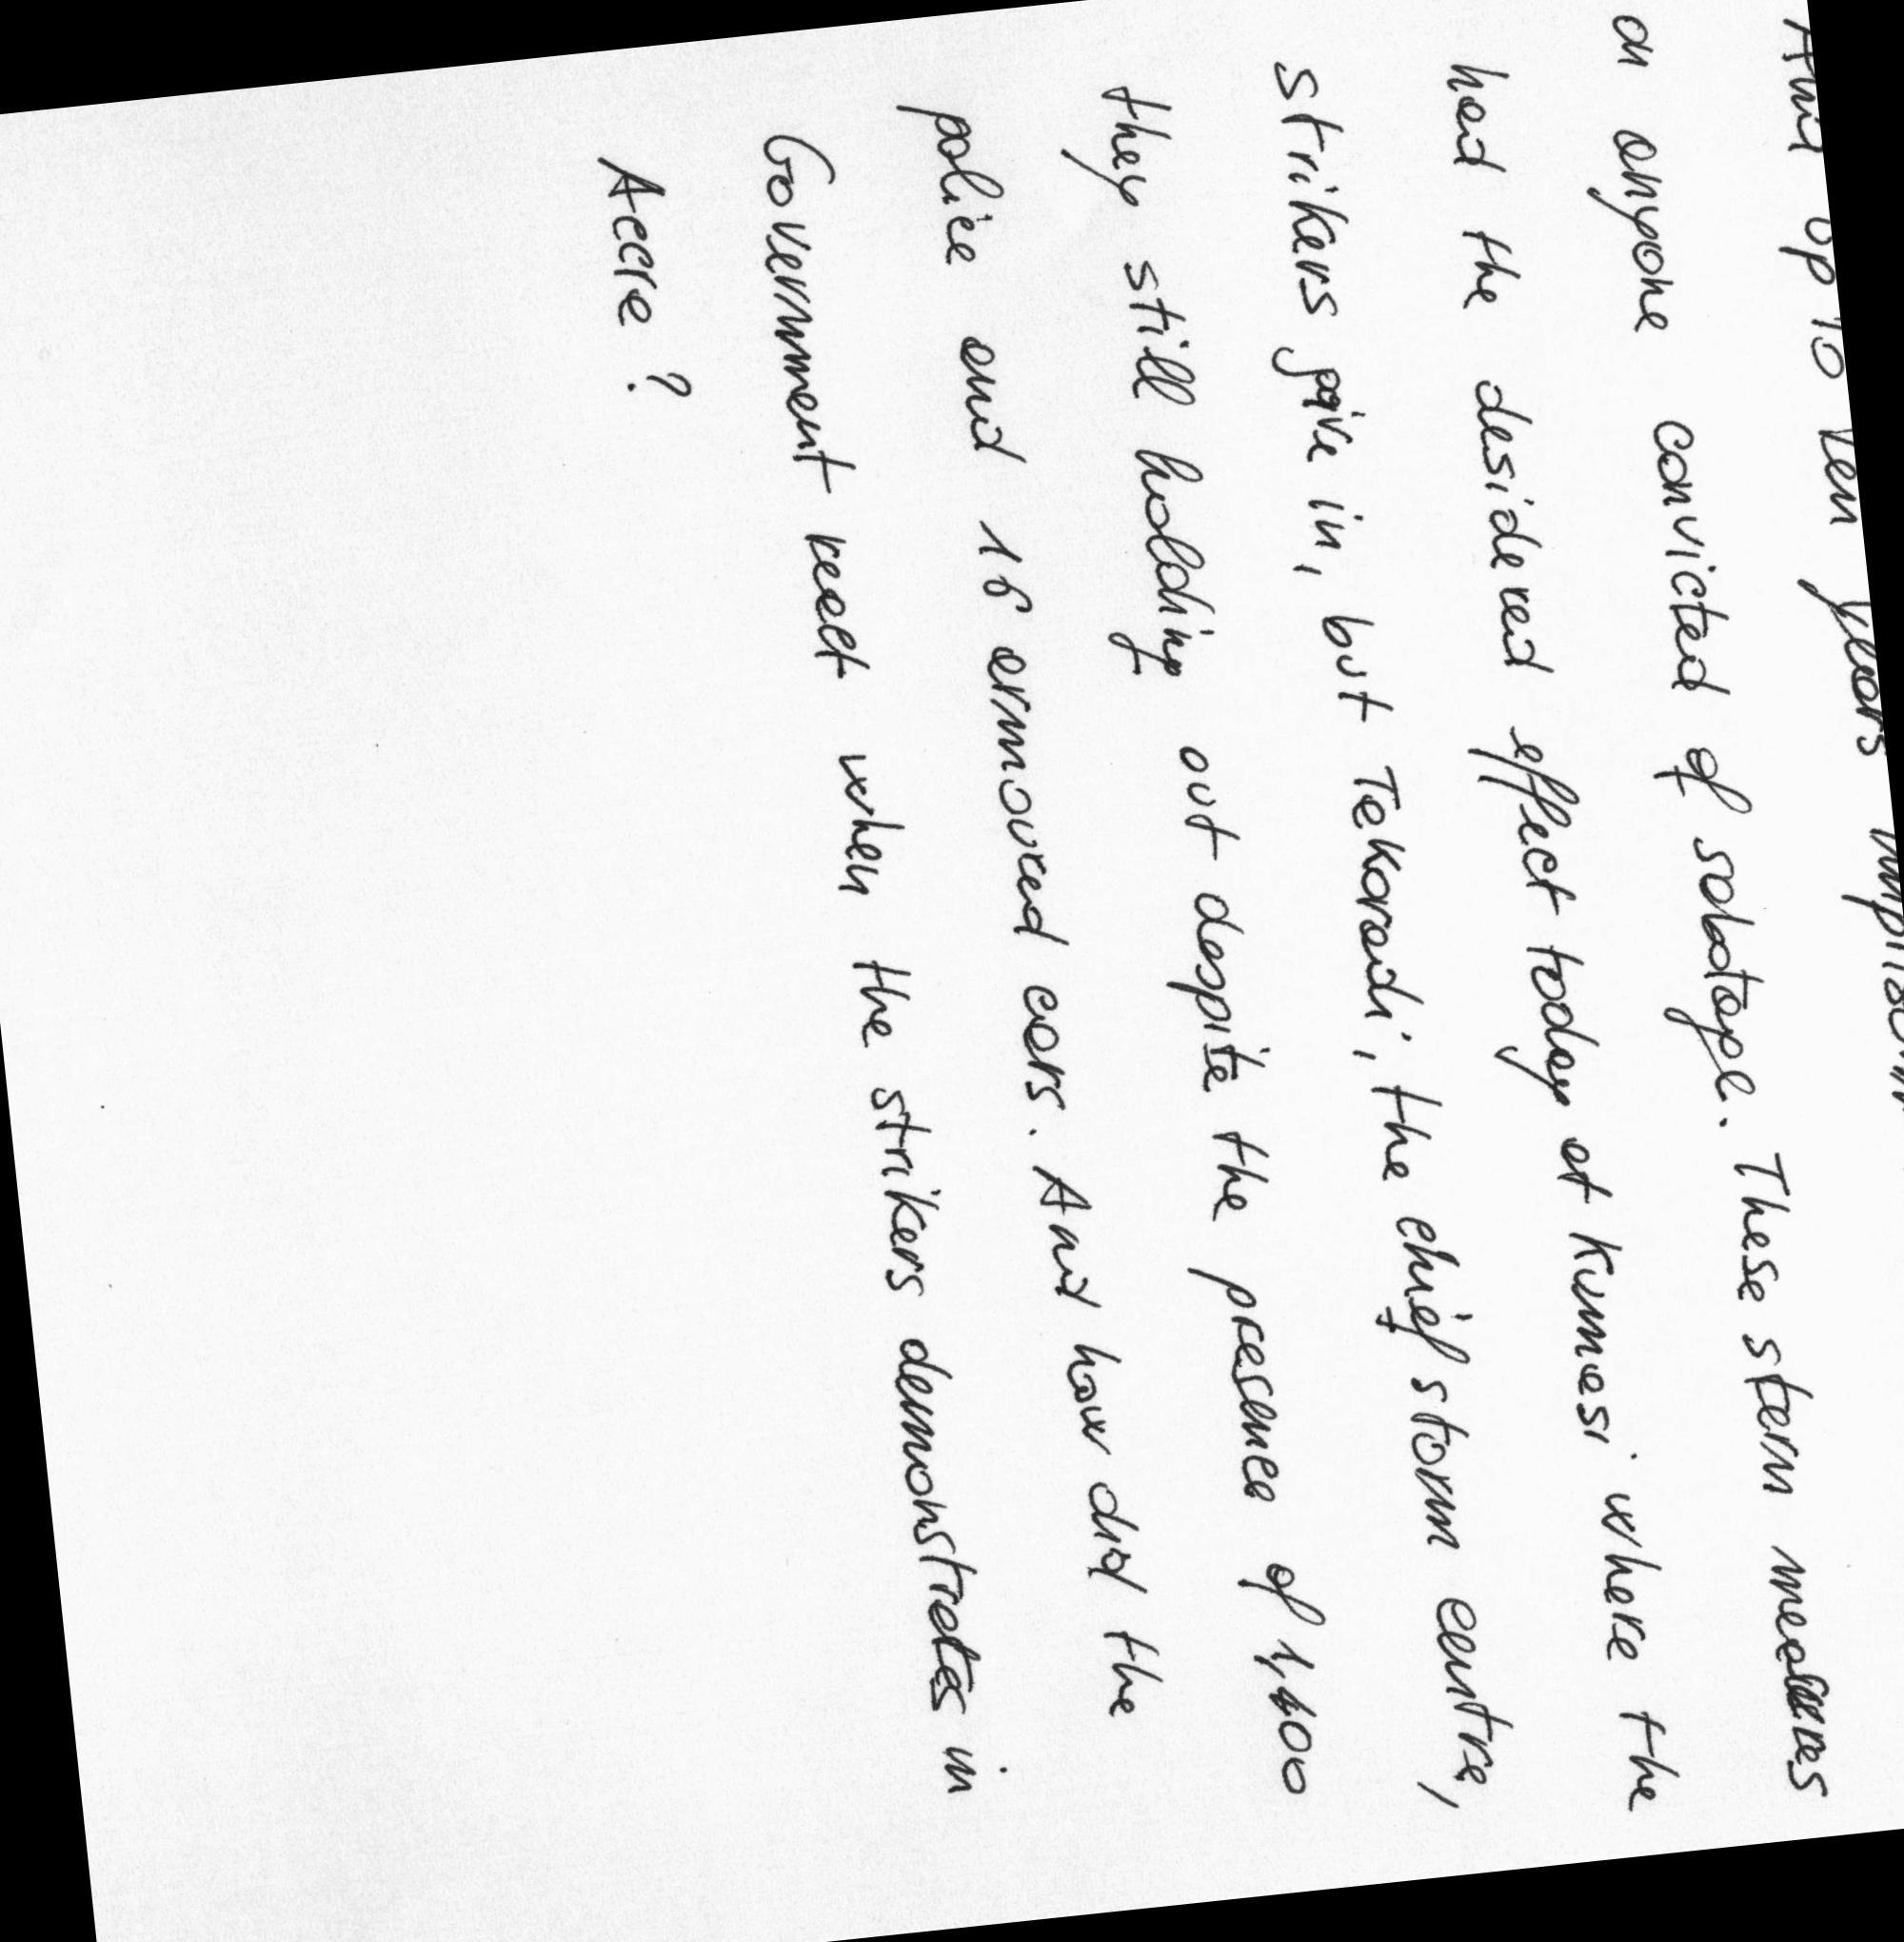 And up to ten years
on anyone convicted of sabotage. These stern measures
had the desidered effect today at Kumasi where the
strikers give in, but Tekoradi, the chief storm centre,
they still holding out despite the presence of 1,400
police and 16 armoured cars. And how did the
Government react when the strikers demonstrates in
Accra?